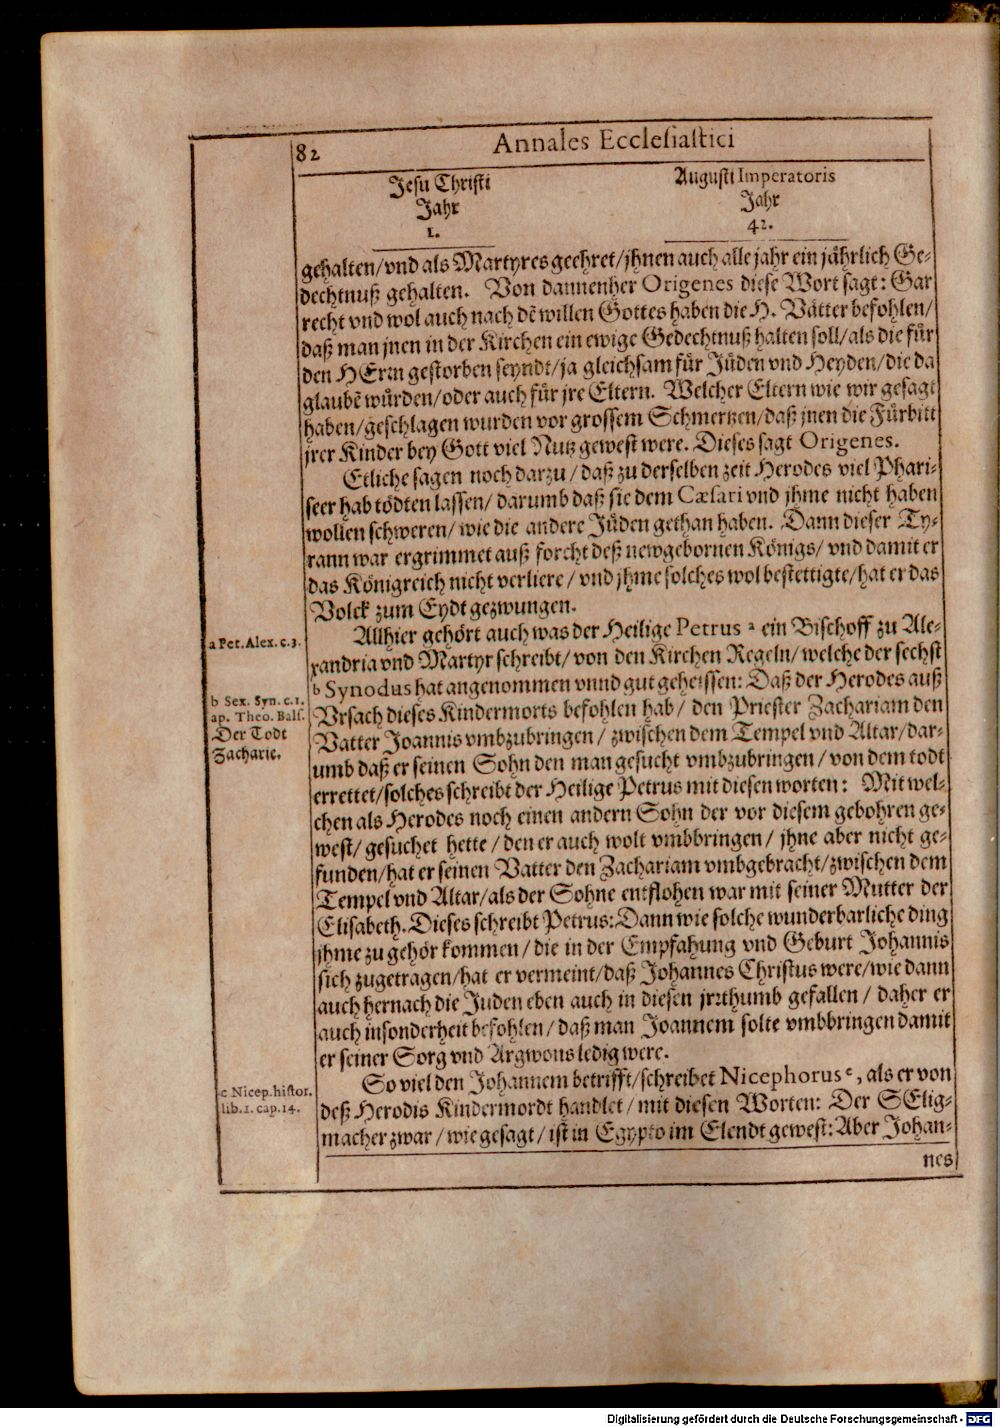 82
Annales Ecclesiastici
Jesu Christi
Jahr
1.
Augusti Imperatoris
Jahr
42.
gehalten/vnd als Martyres geehret/jhnen auch alle jahr ein jährlich Ge-
dechtnuß gehalten. Von dannenher Origenes diese Wort sagt: Gar
recht vnd wol auch nach dē willen Gottes haben die H. Vätter befohlen/
daß man jnen in der Kirchen ein ewige Gedechtnuß halten soll/als die für
den HErrn gestorben seyndt/ja gleichsam für Jüden vnd Heyden/die da
glaubē würden/oder auch für jre Eltern. Welcher Eltern wie wir gesagt
haben/geschlagen wurden vor grossem Schmertzen/daß jnen die Fürbitt
jrer Kinder bey Gott viel Nutz gewest were. Dieses sagt Origenes.
Etliche sagen noch darzu/ daß zu derselben zeit Herodes viel Phari-
seer hab tödten lassen/ darumb daß sie dem Cæsari vnd jhme nicht haben
wollen schweren/ wie die andere Jüden gethan haben. Dann dieser Ty-
rann war ergrimmet auß forcht deß newgebornen Königs/ vnd damit er
das Königreich nicht verliere/ vnd jhme solches wol bestettigte/hat er das
Volck zum Eydt gezwungen.
Allhier gehört auch was der Heilige Petrus a ein Bischoff zu Ale-
a Pet. Alex. c.3.
xandria vnd Martyr schreibt/ von den Kirchen Regeln/ welche der sechst
b Synodus hat angenommen vnnd gut geheissen: Daß der Herodes auß
b Sex. Syn. c.1.
ap. Theo. Bals.
Vrsach dieses Kindermorts befohlen hab/ den Priester Zachariam den
Der Todt
Zacharie.
Vatter Joannis vmbzubringen/ zwischen dem Tempel vnd Altar/dar-
umb daß er seinen Sohn den man gesucht vmbzubringen/ von dem todt
errettet/solches schreibt der Heilige Petrus mit diesen worten: Mit wel-
chen als Herodes noch einen andern Sohn der vor diesem gebohren ge-
west/ gesuchet hette/ den er auch wolt vmbbringen/ jhne aber nicht ge-
funden/hat er seinen Vatter den Zachariam vmbgebracht/zwischen dem
Tempel vnd Altar/als der Sohne entflohen war mit seiner Mutter der
Elisabeth. Dieses schreibt Petrus: Dann wie solche wunderbarliche ding
jhme zu gehör kommen/ die in der Empfahung vnd Geburt Johannis
sich zugetragen/hat er vermeint/daß Johannes Christus were/wie dann
auch hernach die Juden eben auch in diesen jrrthumb gefallen/ daher er
auch insonderheit befohlen/ daß man Joannem solte vmbbringen damit
er seiner Sorg vnd Argwons ledig were.
So viel den Johannem betrifft/schreibet Nicephorus c, als er von
c Nicep. histor.
lib.1. cap.14.
deß Herodis Kindermordt handlet/ mit diesen Worten: Der SElig-
macher zwar/ wie gesagt/ ist in Egypto im Elendt gewest: Aber Johan-
nes
Digitalisierung gefördert durch die Deutsche Forschungsgemeinschaft - DFG